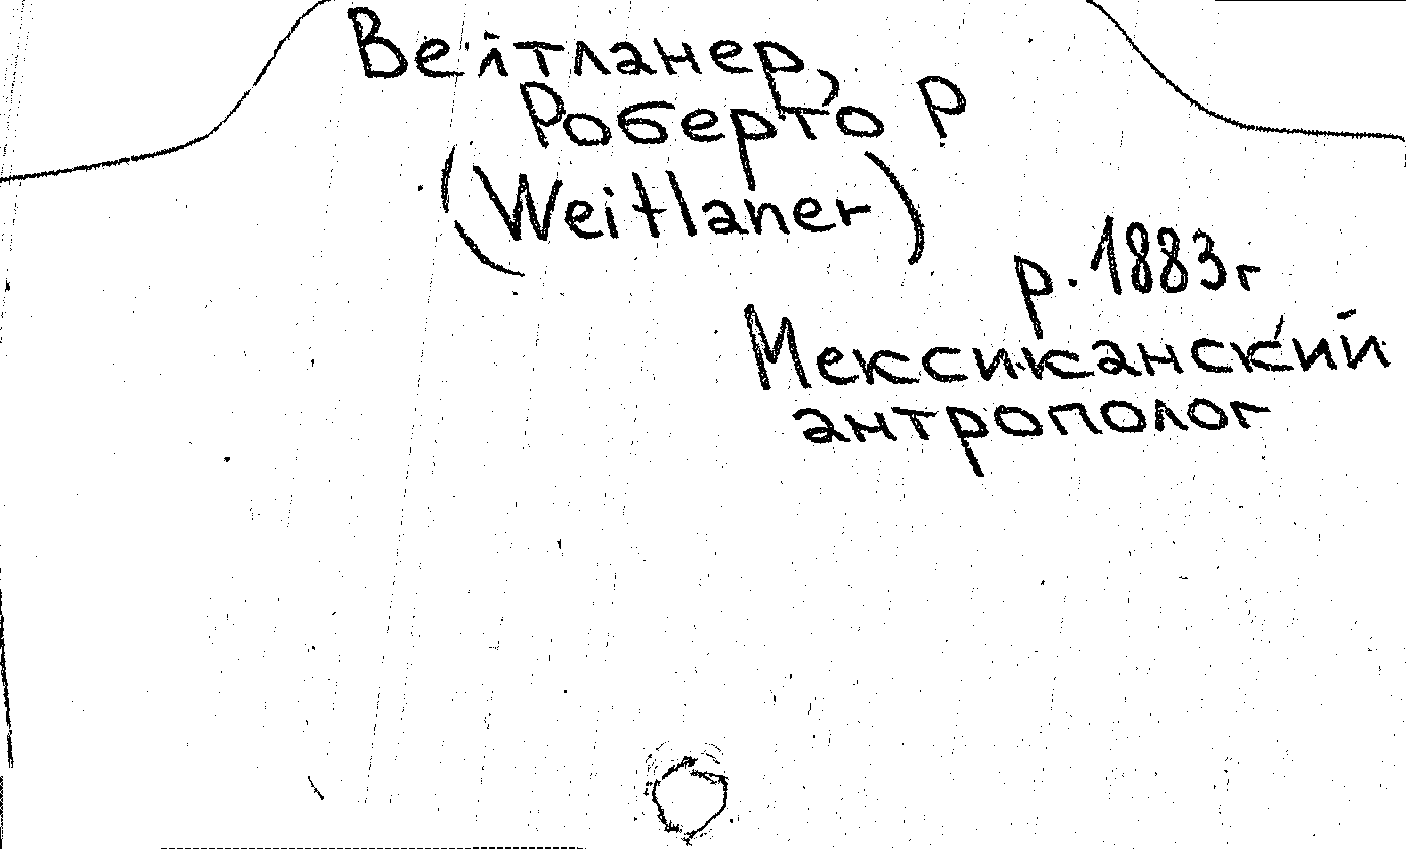 Вейтланер,
Роберто Р.
(Weitlaner)
р. 1883 г
Мексиканский
антрополог